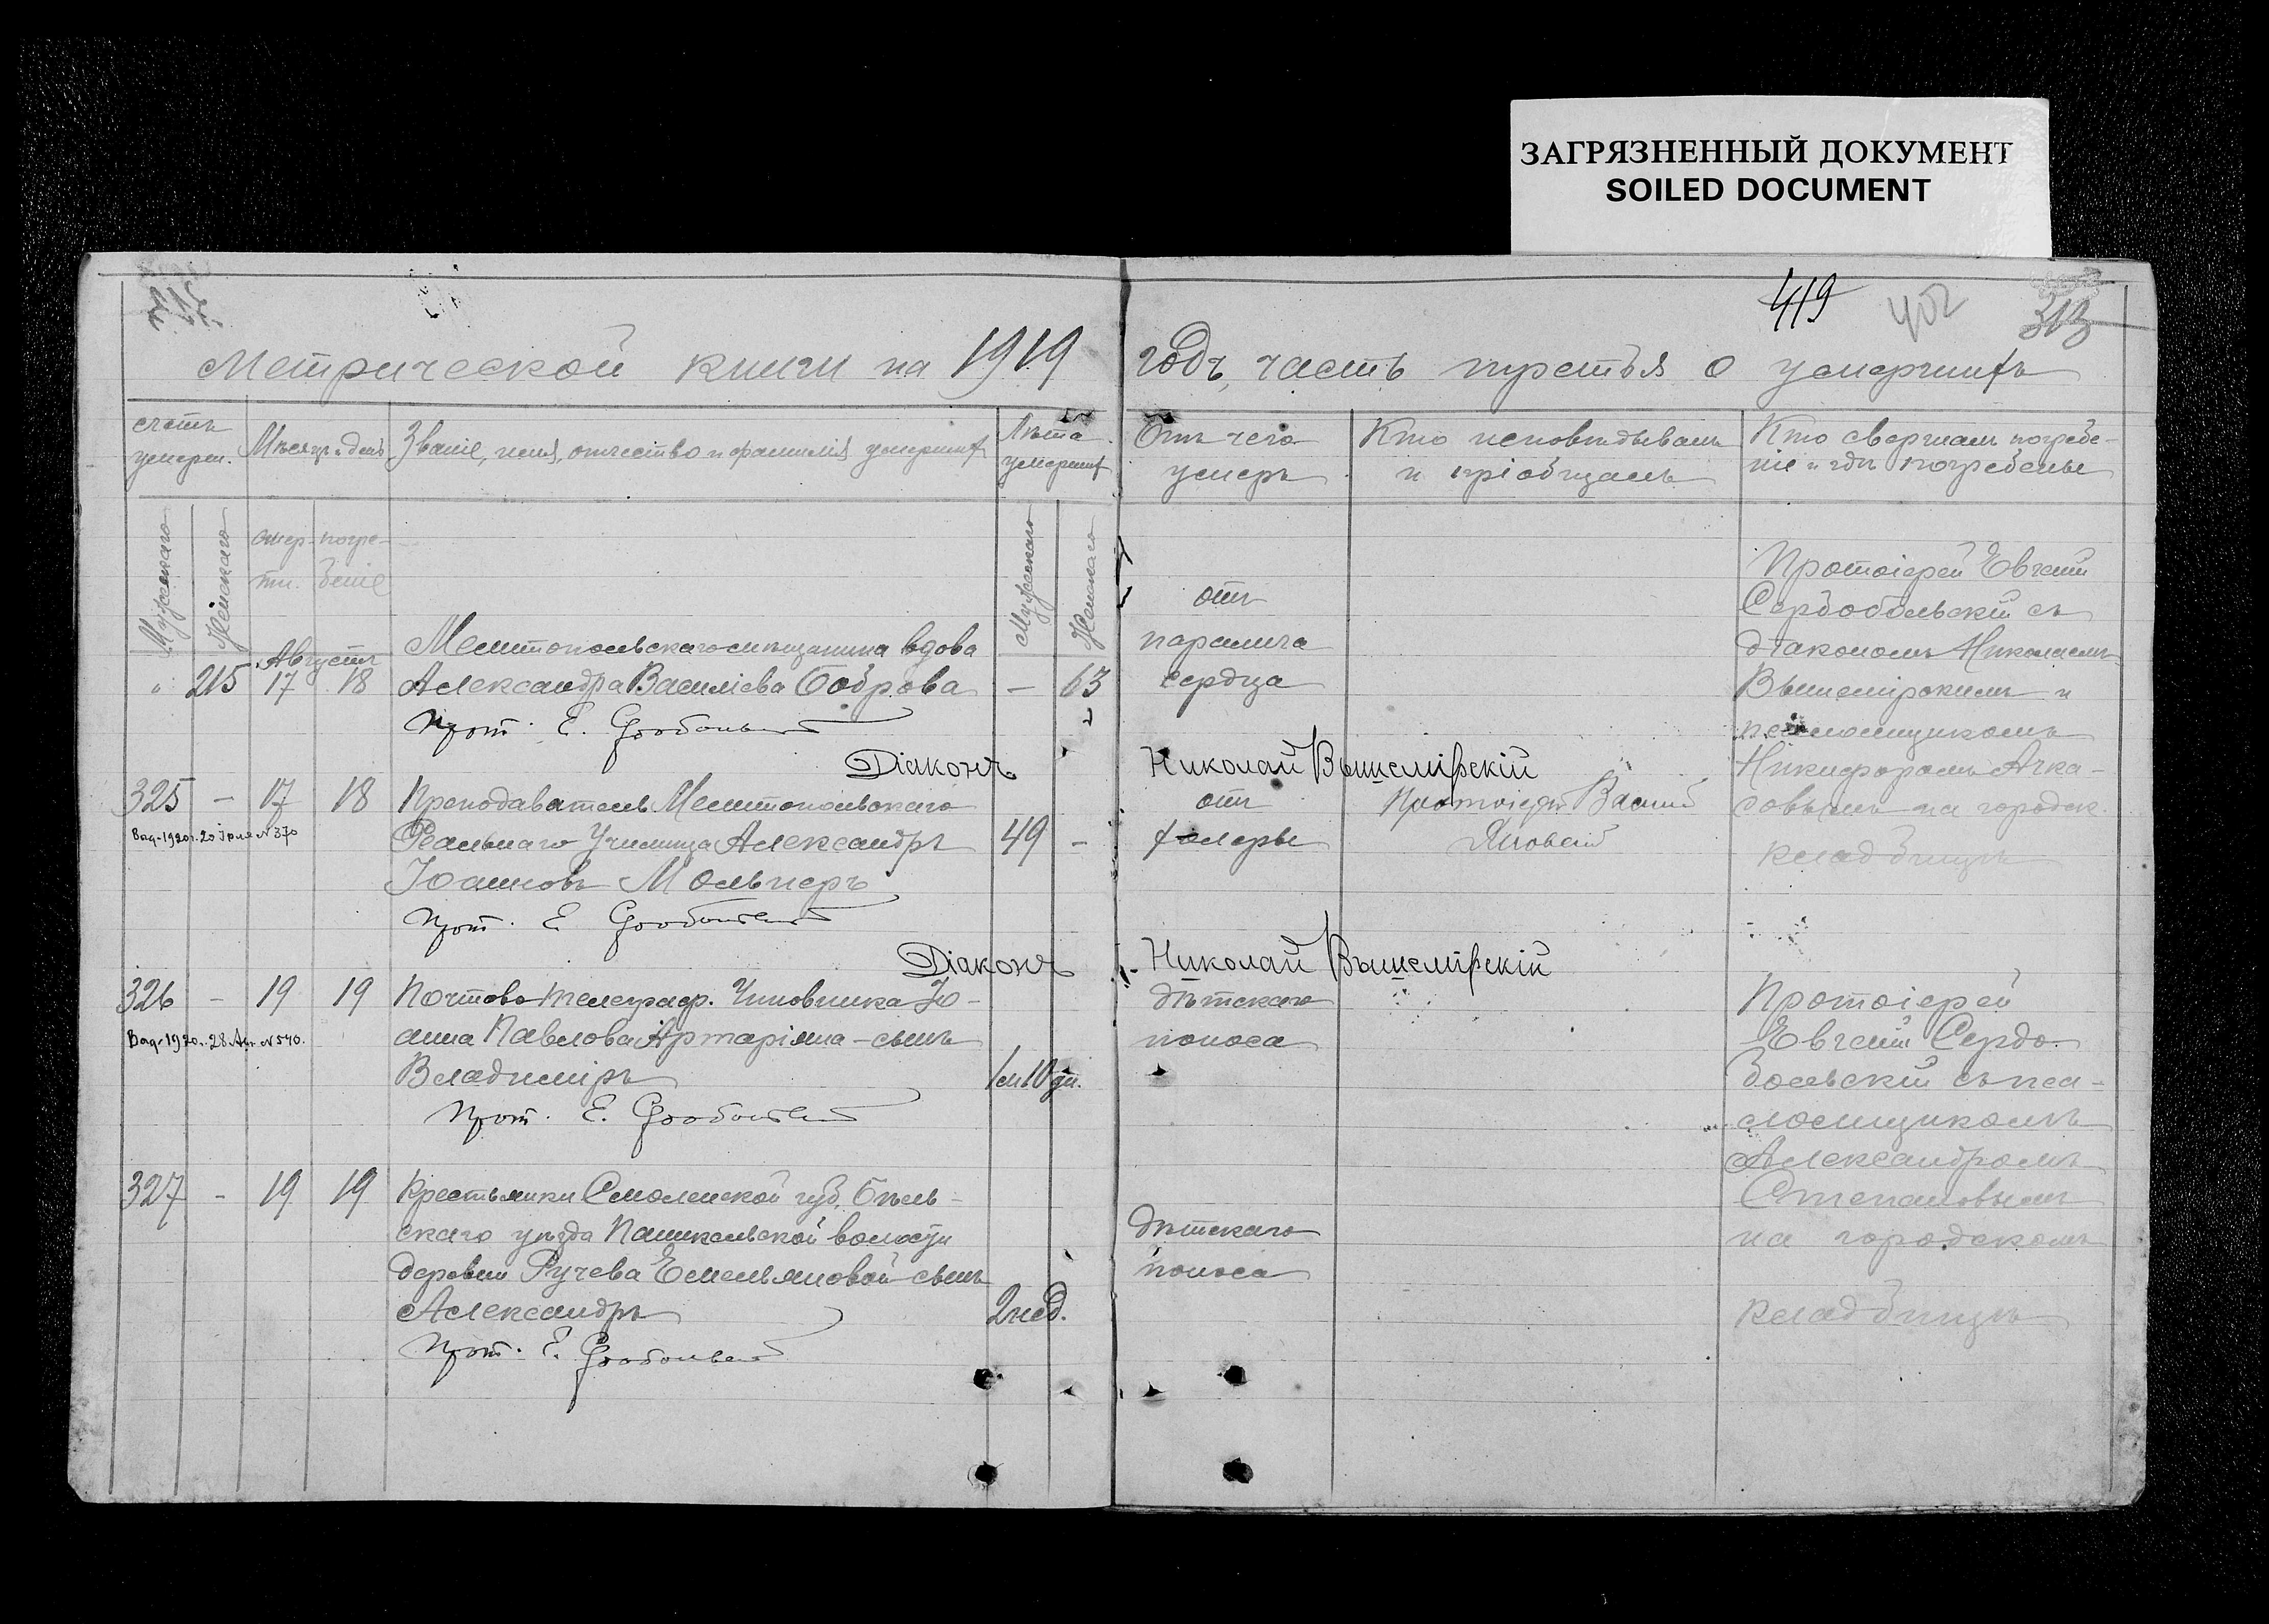 ЗАГРЯЗНЕННЫЙ ДОКУМЕНТ
SOILED DOCUMENT
419
402
313
Метрической книги на 1919
годъ, часть третья о умершихъ
счетъ
умерш.
Мѣсяцъ и день
Званіе, имя, отчество и фамилія умершихъ
Лѣта
умершихъ
Отъ чего
умеръ
Кто исповѣдывалъ
и пріобщалъ
Кто свершалъ погребе-
ніе и гдѣ погребены
Мужскаго
Женскаго
смер-
ти.
погре-
беніе
Мужского
Женскаго
Августъ
" 215 17 18
Мелитопольскаго мѣщанина вдова
Александра Василіева Боброва
— 63
Прот. Е.
отъ
паралича
сердца
Протоіерей Евгеній
Сердобольскій съ
діакономъ Николаемъ
Вышемірскимъ и
псаломщикомъ
Никифоромъ Аска-
совымъ на городск.
кладбищѣ
Діаконъ Николай Вышемірскій
325 — 17 18
Выд. 1920 г. 20 Іюля N 370
Преподаватель Мелитопольскаго
Реальнаго Училища Александръ
Іоанновъ Мольнеръ
49 -
Прот. Е.
отъ
холеры
Протоіерей Василій
Яновскій
Діаконъ Николай Вышемірскій
326 - 19 19
Выд. 1920 г. 28 Авг. N 540.
Почтово телеграф. Чиновника Іо-
анна Павлова Артаріяна - сынъ
Владиміръ
1 м. 10 дн.
Прот. Е.
дѣтскаго
поноса
Протоіерей
Евгеній Сердо-
больскій съ пса-
ломщикомъ
Александромъ
Степановымъ
на городскомъ
кладбищѣ
327 - 19 19
Крестьянки Смоленской губ. Бѣль-
скаго уѣзда волости
деревни Ручева Емельяновой сынъ
Александръ
2 нед.
Прот. Е.
дѣтскаго
поноса